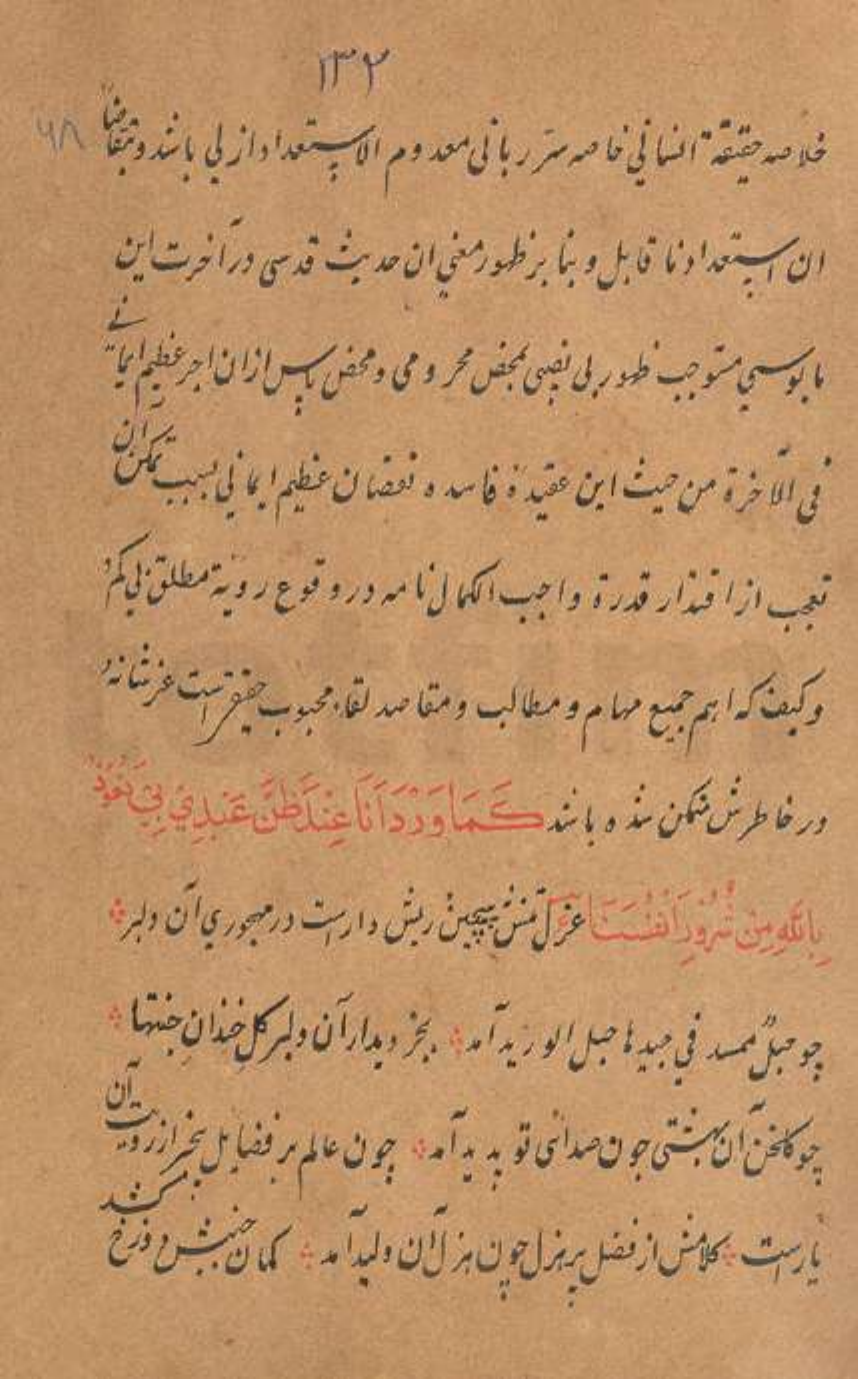 ۱۳۲
۶۸
خلاصه حقیقة انسانی خاصه سرّ ربانی معدوم الاستعداد ازلی باشد و بتقاضاً
ان استعداد نا قابل و بنا بر ظهور معنی ان حدیث قدسی در آخرت این
مایوسی مستوجب ظهور بی نصیبی بمحض محرومی و محض یاس ازان اجر عظیم ایمانے
فی الآخرة من حیث این عقیدهٔ فاسده نقصان عظیم ایمانی بسبب تمکن آن
تعجب از اقتدار قدرة واجب الکمال نامه در وقوع رویة مطلق بی کم و
وکیف که اهم جمیع مهام و مطالب و مقاصد لقاء محبوب حقیقی است عز شانه
در خاطرش متمکن شده باشد كَمَا وَرَدَ اَنَا عِنْدَ ظَنِّ عَبْدِي بِي نَعُوْذُ
بِاللهِ مِنْ شُرُوْرِ اَنْفُسِنَا غزل تنش پیچین ریش دارست در مهجوری آن دلبر
چو حبلٌ ممسد فی جیدها حبل الورید آمد بجز دیدار آن دلبر گل خندان جنتها
چو گلخن آن بهشتی چون صدائی تو پدید آمد چون عالم بر فضایل بیخبر از رویت آن
یارست کلامش از فضل پر هزل چون هزل آن ولید آمد کمان جنبش دوزخ کشد